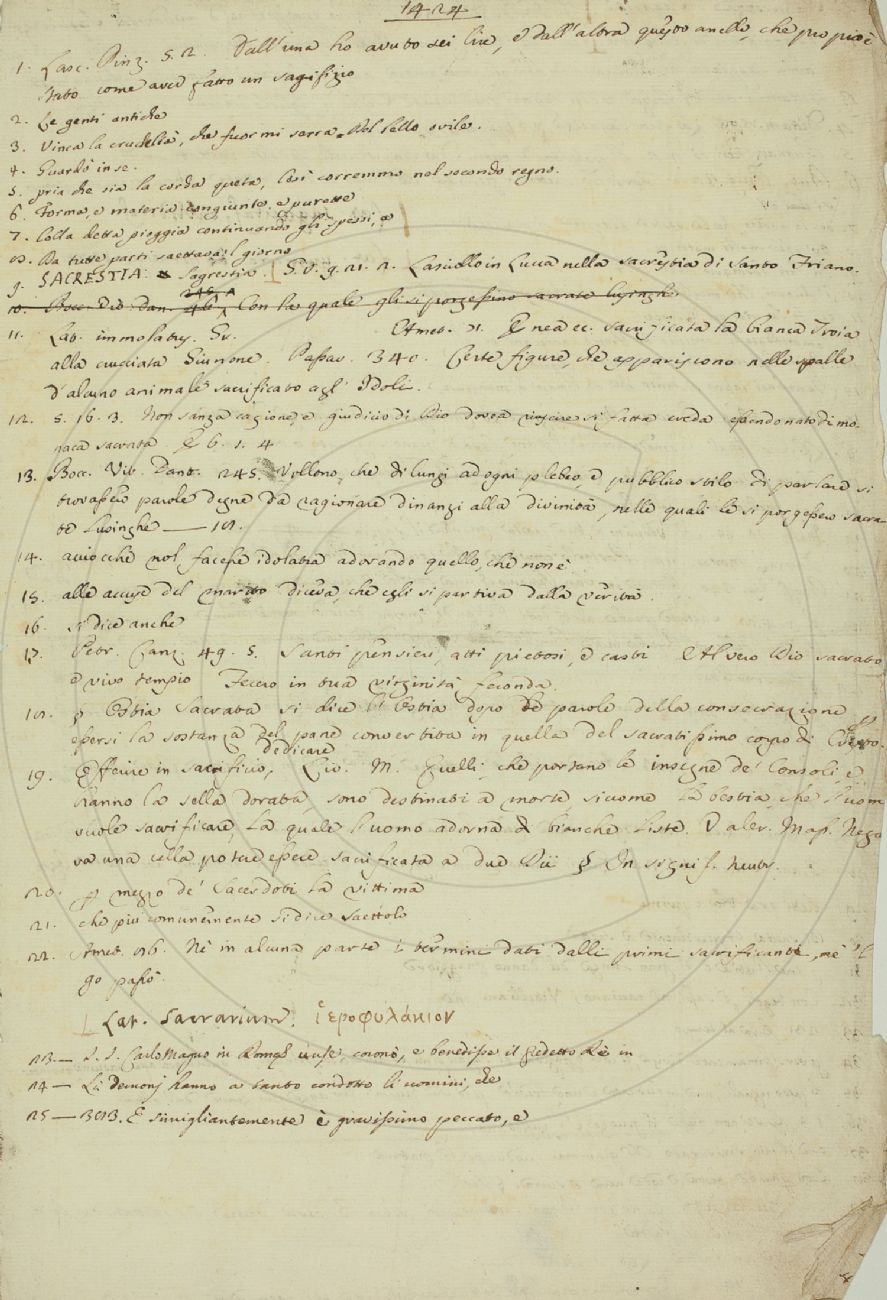 1424
1. Lasc. Pinz. 5. 2. Dall'una ho avuto sei lire, e dall'altra questo anello, che pur
stato come aver fatto un sagrifizio
2. Le genti antiche
3. Vinca la crudeltà, che fuor mi serra. Del bello ovile.
4. Guardò in se.
5. pria che sia la corda queta, Così corremmo nel secondo regno.
6. Forma, e materia congiunte, e purette
7. Colla detta pioggia continuando gli spessi, e
8. Da tutte parti saettava 'l giorno
9. SACRESTIA: Sagrestia. S. V. 9. 21. 2. Lasciollo in Lucca nella sacrestia di Santo Friano.
10. Bocc. Vit. Dan. 245. Con la quale gli si porgessino sacrate lusinghe
11. Lat. immolatus. Gr. Amet. 71. Enea ec. sacrificata la bianca Troia
alla cruciata Giunone. Passav. 340. Certe figure, che appariscono nelle spalle
d'alcuno animale sacrificato agl' Idoli.
12. 5. 16. 3. Non sanza cagione, e giudicio di Dio dovea uscire sì fatta ereda essendo nato di mo-
naca sacrata E 6. 1. 4
13. Bocc. Vit. Dant. 245. Vollono, che di lungi ad ogni plebeo, e pubblico stilo di parlare si
trovassero parole degne da ragionare dinanzi alla divinità, nelle quali le si porgessero sacra-
te lusinghe — 18.
14. acciocchè nol facesse idolatra adorando quello, che non è
15. alle accuse del marito diceva, che egli si partiva dalla verità.
16. si dice anche
17. Petr. Canz. 49. 5. Santi pensieri, atti pietosi, e casti Al vero Dio sacrato
e vivo tempio Fecero in tua virginità feconda.
18. § Ostia Sacrata si dice l'Ostia dopo le parole della consecrazione p
essersi la sostanza del pane convertita in quella del sacratissimo corpo di Cristo.
dedicare
19. Offerire in sacrificio, Liv. M. Quelli, che portano le insegne de' Consoli, e
hanno la sella dorata, sono destinati a morte, siccome la bestia, che l'uom
vuole sacrificare, la quale l'uomo adorna di bianche liste. Valer. Mass. Nega-
va una cella potere essere sacrificata a due Dii § In signif. neutr.
20. p mezzo de' Sacerdoti la vittima
21. che più comunemente si dice Saettolo
22. Amet. 86. Nè in alcuna parte i termini dati dalli primi sacrificanti, nè 'l
go passò.
Lat. Sacrarium. ἱεροφυλάκιον
23 — Carlo Magno in Roma unse, coronò, e benedisse il predetto Re in
24 — Li demonj hanno a tanto condotto li uomini, che
25 — 303. E simigliantemente è gravissimo peccato, e